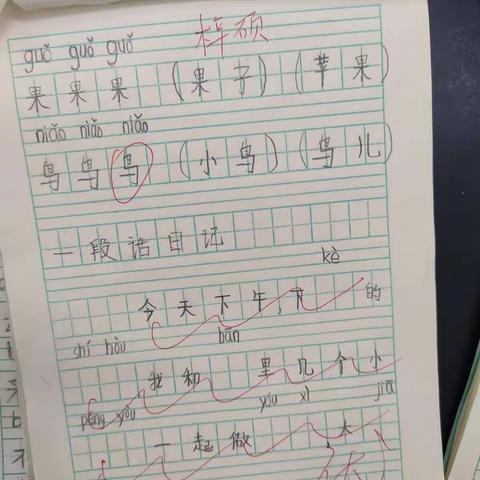 梓硕
guǒ guǒ guǒ
果果果(果子)(苹果)
niǎo niǎo niǎo
鸟鸟鸟(小鸟)(鸟儿)
一段话日记
kè
今天下午,下的
shí hòu bān
我和里几个小
péng yǒu yóu xì jiā
一起做,大